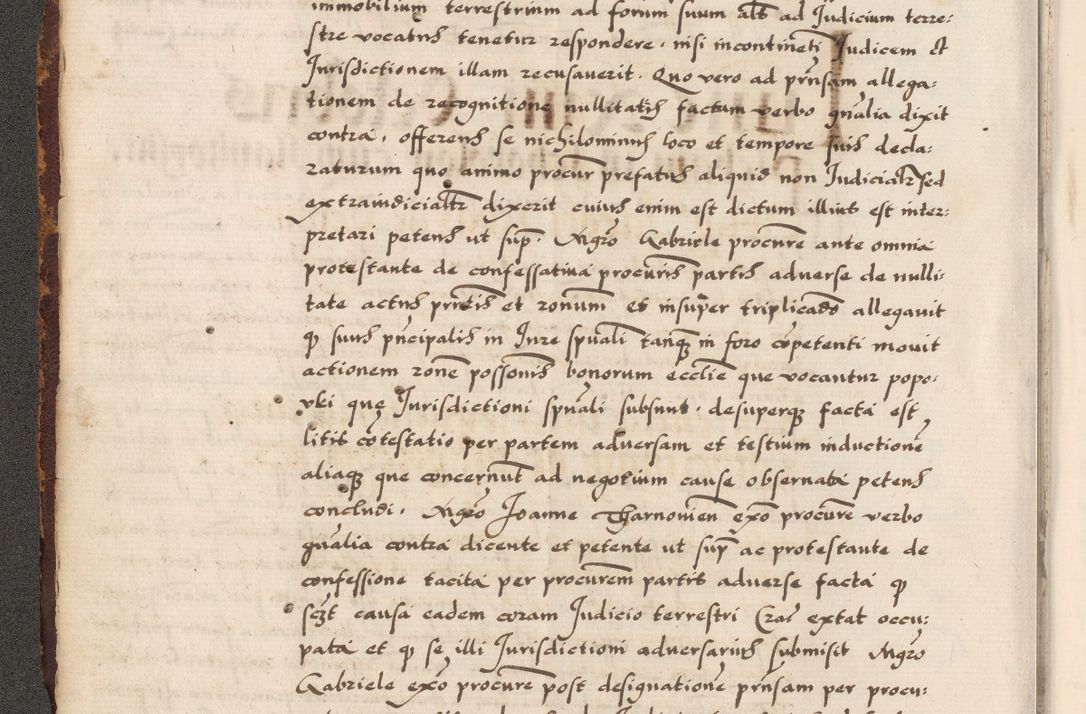 immobilium terrestrium ad forum suum alt̄s ad Iudicium terre:
stre vocatus tenetur respondere · nisi incontinēti Iudicem et
Iurisdictionem illam recusaverit. Quo vero ad prn̄sam allega:
tionem de recognitione nullitatis factam verbo gn̄alia dixit
contra, offerens se nichilominus loco et tempore suis decla:
raturum quo animo procur prefatus aliquid non Iudicialr̄ sed
extraiudicialtr̄ dixerit cuius enim est dictum illius est inter:
pretari petens ut sup̄. Mgrō Gabriele procurē ante omnia
protestante de confessativa procuris partis adverse de nulli:
tate actus prn̄tis et ronum̄ et insuper triplicado allegavit
qꝫ suus prīncipalis in Iure spūali tanqꝫ in foro cōpetenti movit
actionem ronē possonis bonorum ecclīe que vocantur popo:
vki quę Iurisdictioni spūali subsunt · desuperqꝫ facta est
litis cōtestatio per partem adversam et testium inductionē
aliaqꝫ que concernūt ad negotium cause observata petens
concludi. Mgrō Joanne Tharnovien̄ exō procurē verbo
gn̄alia contra dicente et petente ut sup̄ ac protestante de
confessione tacita per procurem̄ partis adverse facta qꝫ
sczt causa eadem coram Iudicio terrestri Cras̄ extat occu:
pata et qꝫ se illi Iurisdictioni adversarius submisit Mgrō
Gabriele exō procurē post designationē prn̄sam per procu: